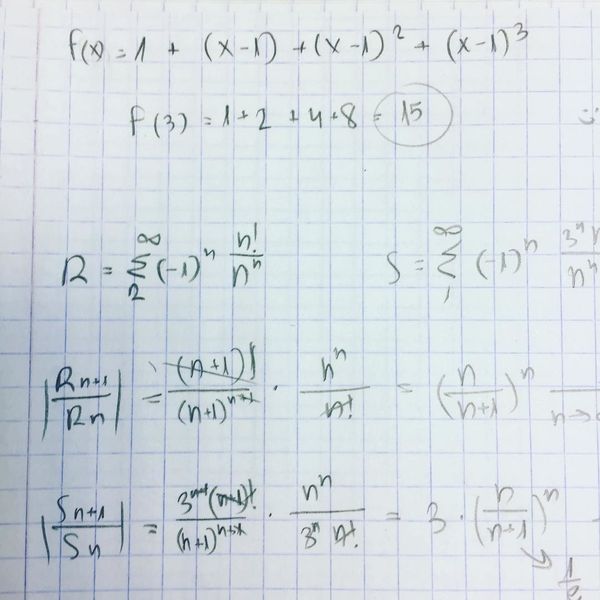 f(x) = 1 + (x-1) + (x-1)² + (x-1)³
f(3) = 1+2 +4+8 = 15
R = ∑₂^∞ (-1)ⁿ n!/nⁿ S = ∑₁^∞ (-1)ⁿ 3ⁿ n/nⁿ
|Rn+1/Rn| = (n+1)!/(n+1)ⁿ⁺¹ · nⁿ/n! = (n/n+1)ⁿ n→
|Sn+1/Sn| = 3ⁿ⁺¹(n+1)!/(n+1)ⁿ⁺¹ · nⁿ/3ⁿ n! = 3 · (n/n+1)ⁿ
1/e